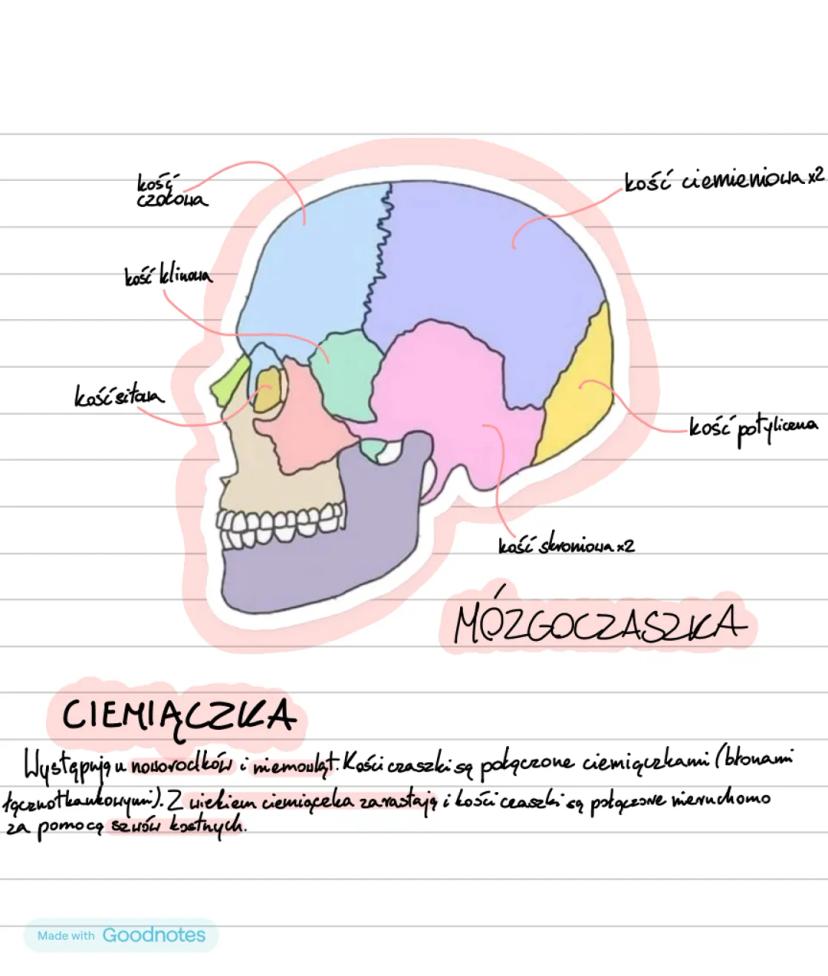 kość
czołowa
kość ciemieniowa x2
kość klinowa
kość sitowa
kość potyliczna
kość skroniowa x2
MÓZGOCZASZKA
CIEMIĄCZKA
Występują u noworodków i niemowląt. Kości czaszki są połączone ciemiączkami (błonami
łącznotkankowymi). Z wiekiem ciemiączka zarastają i kości czaszki są połączone nieruchomo
za pomocą szwów kostnych.
Made with Goodnotes